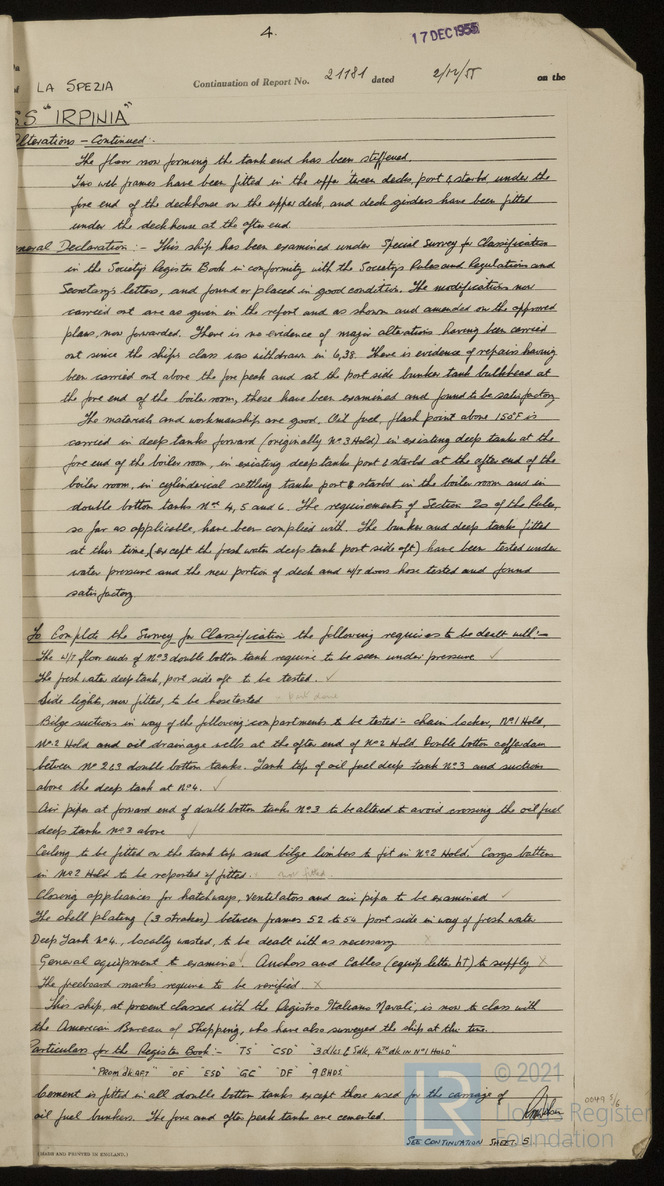 4.
17 DEC 1955
LA SPEZIA Continuation of Report No. 21181 dated 2/12/55 on the
SS "IRPINIA"
Alterations – Continued.
The floor now forming the tank end has been stiffened.
Two web frames have been fitted in the upper tween decks, port & starbd, under the
fore end of the deckhouse on the upper deck, and deck girders have been fitted
under the deckhouse at the after end
General Declaration :- This ship has been examined under Special Survey for Classification
in the Society's Register Book in conformity with the Society's Rules and Regulations and
Secretary's letters, and found or placed in good condition. The modifications now
carried out are as given in the report and as shown and amended on the approved
plans, now forwarded. There is no evidence of major alterations having been carried
out since the ship's class was withdrawn in 6,38. There is evidence of repairs having
been carried out above the fore peak and at the port side bunker tank bulkhead at
the fore end of the boiler room, these have been examined and found to be satisfactory
The materials and workmanship are good. Oil fuel, flash point above 150°F is
carried in deep tanks forward (originally No 3 Hold) in existing deep tanks at the
fore end of the boiler room, in existing deep tanks port & starbd at the after end of the
boiler room, in cylindrical settling tanks port & starbd in the boiler room and in
double bottom tanks Nos 4, 5 and 6. The requirements of Section 20 of the Rules,
so far as applicable, have been complied with. The bunker and deep tanks fitted
at this time, (except the fresh water deep tank port side aft) have been tested under
water pressure and the new portion of deck and w/t doors hose tested and found
satisfactory
To Complete the Survey for Classification the following requires to be dealt with:-
The w/t floor ends of No 3 double bottom tank require to be seen under pressure ✓
The fresh water deep tank, port side aft to be tested. ✓
Side lights, now fitted, to be hose tested - Not done
Bilge suctions in way of the following compartments to be tested :- chain locker, No 1 Hold,
No 2 Hold and oil drainage wells at the after end of No 2 Hold Double bottom cofferdam
between No 2 & 3 double bottom tanks. Tank top of oil fuel deep tank No 3 and suctions
above the deep tank at No 4. ✓
Air pipes at forward end of double bottom tanks No 3 to be altered to avoid crossing the oil fuel
deep tanks No 3 above ✓
Ceiling to be fitted on the tank top and bilge limbers to fit in No 2 Hold. ✓ Cargo battens
in No 2 Hold to be reported if fitted. not fitted.
Closing appliances for hatchways, ventilators and air pipes to be examined ✓
The shell plating (3 strakes) between frames 52 to 54 port side in way of fresh water
Deep Tank No 4, locally wasted, to be dealt with as necessary x
General equipment to examine ✓. Anchors and Cables (equip letter ht) to supply x
The freeboard marks require to be verified x
This ship, at present classed with the Registro Italiano Navali, is now to class with
the American Bureau of Shipping, who have also surveyed the ship at this time.
Particulars for the Register Book :- "TS" "CSD" "3 dks & Sdk, 4TH dk IN No 1 HOLD"
"PROM dk AFT" "OF" "ESD" "GC" "DF" "9 BHDS"
Cement is fitted in all double bottom tanks except those used for the carriage of
oil fuel bunkers. The fore and after peak tanks are cemented.
SEE CONTINUATION SHEET. 5
(MADE AND PRINTED IN ENGLAND.)
0049 5/6
© 2021
LR
Lloyd's Register
Foundation